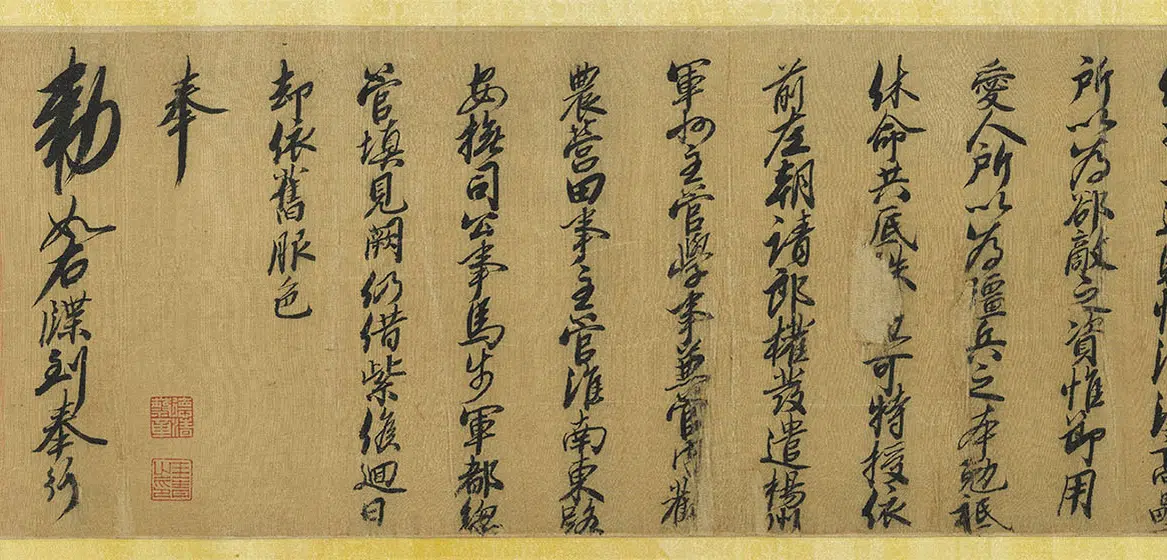 所以為郤敵之資惟節用
愛人所以為彊兵之本勉祗
休命共底可特授依
前左朝請郎權發遣楊州
軍州主管學事兼管內勸
農營田事主管淮南東路
安撫司公事馬步軍都總
管填見闕仍借紫候迴日
却依舊服色
奉
勅如右牒到奉行